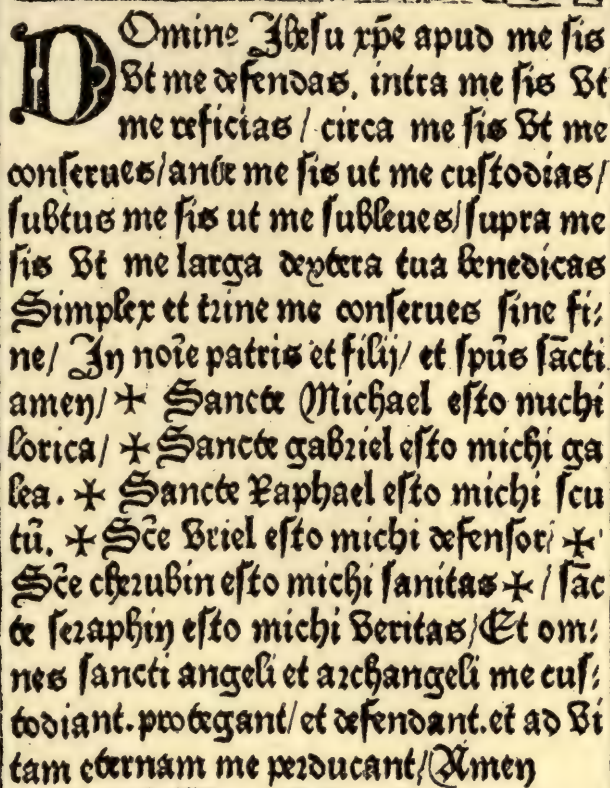 DOmine Ihesu xp̄e apud me sis
Vt me defendas. intra me sis Vt
me reficias / circa me sis Vt me
conserues/ante me sis ut me custodias/
subtus me sis ut me subleues/supra me
sis Vt me larga dextera tua benedicas
Simplex et trine me conserues sine fi:
ne/ In noīe patris et filij/ et sp̄us sācti
amen/ ✠ Sancte Michael esto michi
lorica/ ✠ Sancte gabriel esto michi ga
lea. ✠ Sancte Raphael esto michi scu
tū. ✠ Sc̄e Vriel esto michi defensor/ ✠
Sc̄e cherubin esto michi sanitas ✠ / sāc
te seraphin esto michi Veritas/Et om:
nes sancti angeli et archangeli me cus:
todiant.protegant/ et defendant.et ad Vi
tam eternam me perducant/Amen